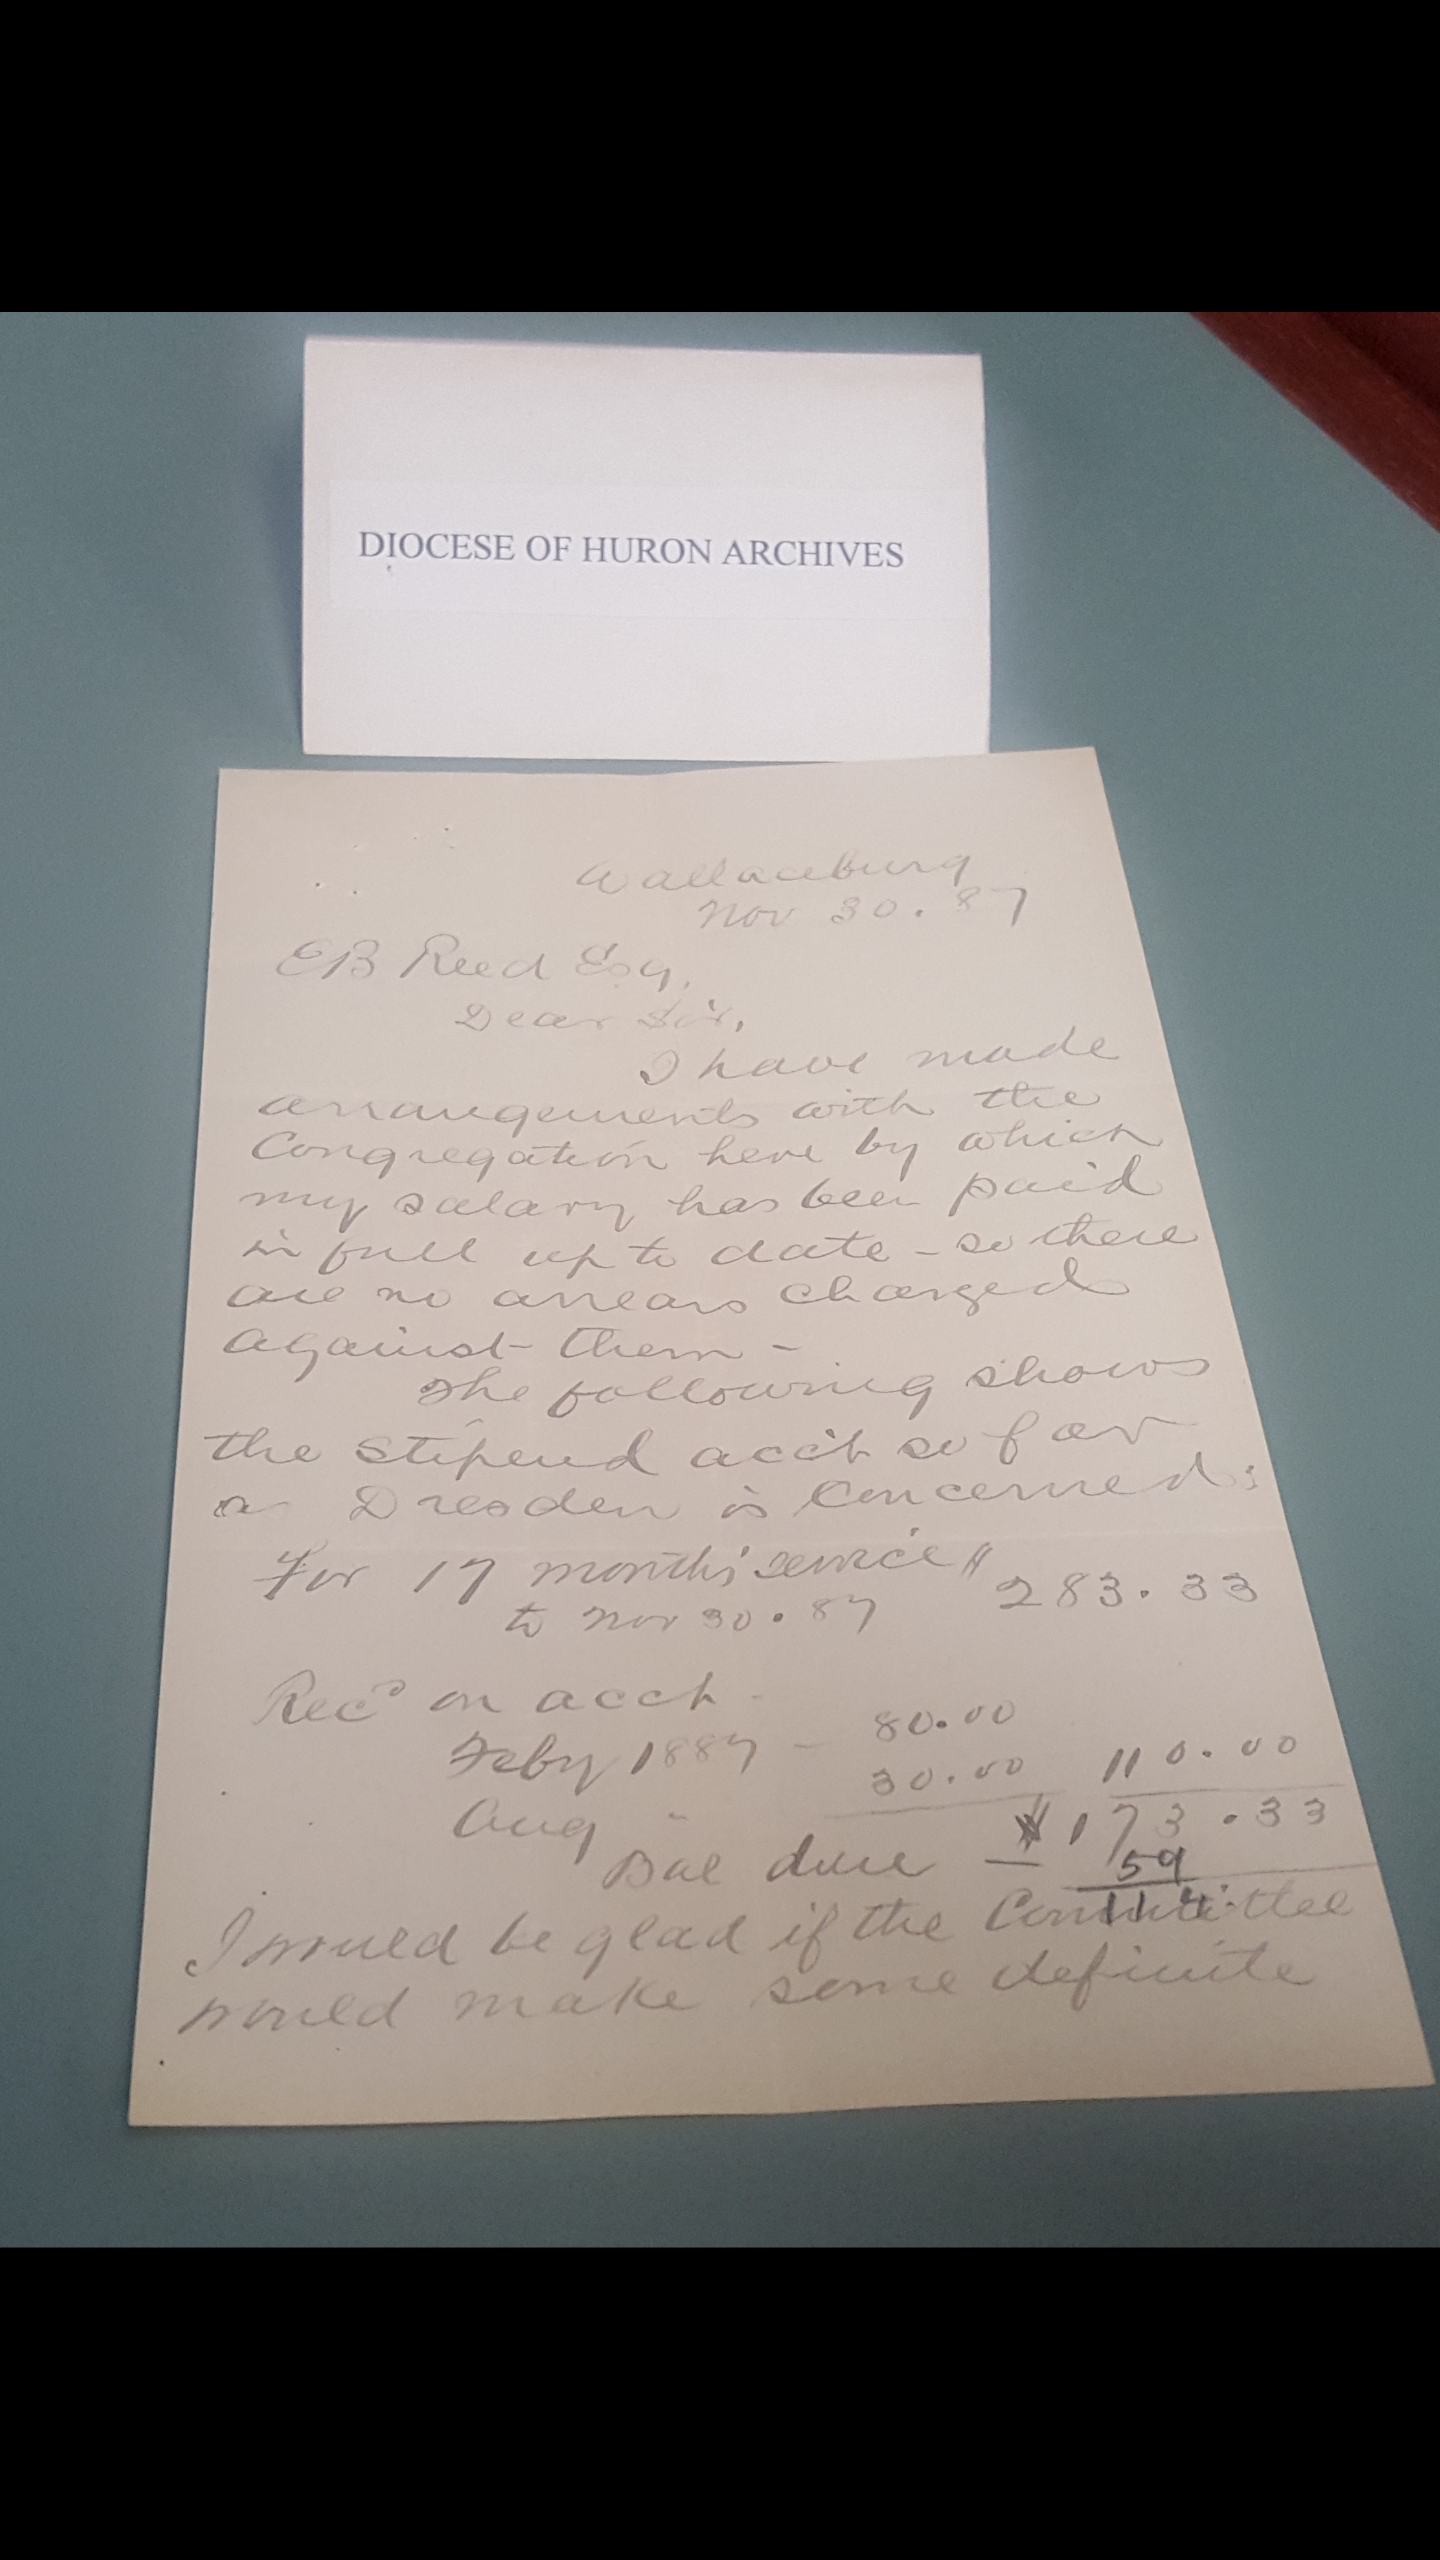 DIOCESE OF HURON ARCHIVES
Wallaceburg
Nov 30. 87
EB Reed Esq,
Dear Sir,
I have made
arrangements with the
Congregation here by which
my salary has been paid
in full up to date - so there
are no arrears charged
against them -
The following shows
the stipend acct so far
as Dresden is concerned:
For 17 months' service $
to Nov 30. 87 283.33
Recd on acct -
Feby 1887 - 80.00
Aug " 30.00 110.00
Bal due $173.33
59
114
I would be glad if the Committee
would make some definite